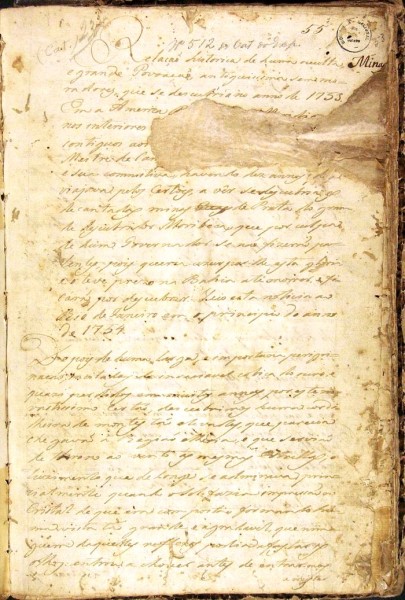 Nº 512
55
Minas
Relação historica de huma occulta,
e grande Povoação, antiquissima sem mo-
radores, que se descubrio no anno de 1753.
Em a America
nos interiores
contiguos aos
Mestre de Can
e sua comitiva, havendo dez annos, q̃
viajava pelos Certões, a ver se descubria as
decantadas minas de Prata do gran-
de descubridor Moribeca, que por culpa
de hum Governador se não fizerão pa-
tentes, pois queria usurparlhe esta gloria
e o teve prezo na Bahia até morrer, e fi-
carão por descubrir. Veio esta noticia ao
Rio de Janeiro em o principio do anno
de 1754.
Depois de huma larga, e importuna peregri-
nação, incitados da insaciavel cobiça de ouro, e
quasi perdidos em muitos annos por este
vastissimo Certão, descubrimos huma cordi-
lheira de montes tão elevados, que parecia
chegavão á Região etherea, e que servião
de throno ao vento, ás mesmas Estrellas; o
luzimento que de longe se admirava, princi-
palmente quando o Sol fazia impressão no
Cristal de que era composta, formando huma
vista tão grande, e agradavel, que nin-
guem daquelles reflexos podia afastar os
olhos: entrou a chover antes de entrarmos
a registrar